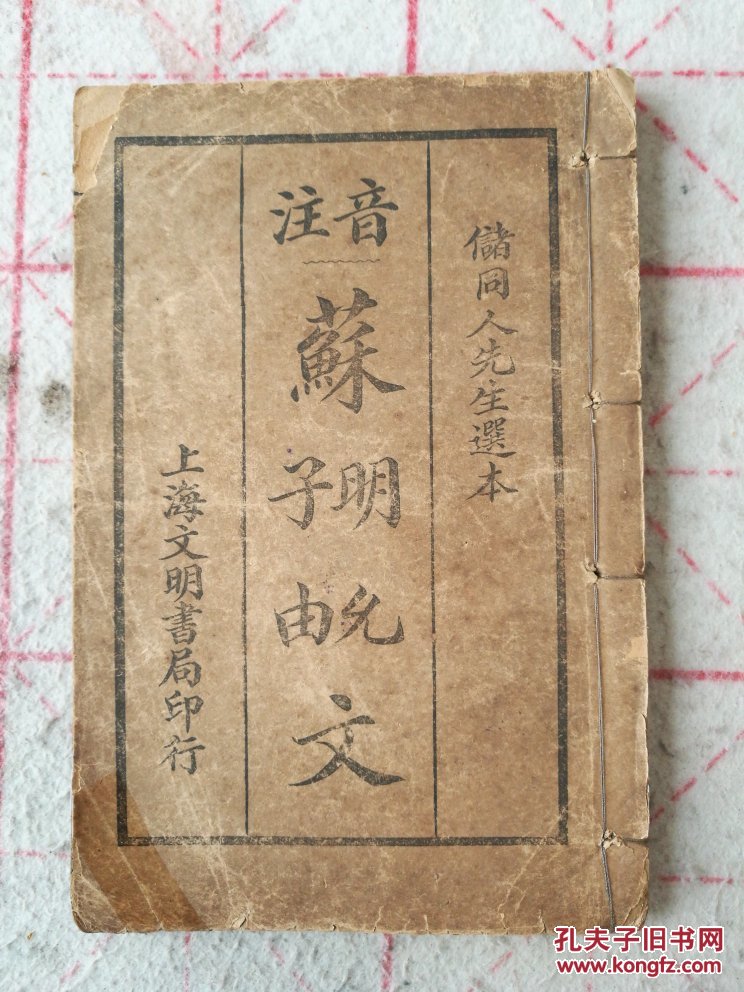 儲同人先生選本
音注
蘇明允子由文
上海文明書局印行
孔夫子旧书网
www.kongfz.com